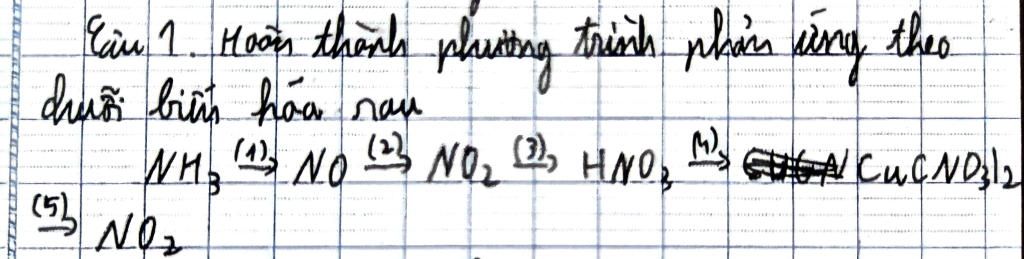 Câu 1. Hoàn thành phương trình phản ứng theo
chuỗi biến hóa sau
NH₃ (1)→ NO (2)→ NO₂ (3)→ HNO₃ (4)→ Cu(NO₃)₂
(5)→ NO₂